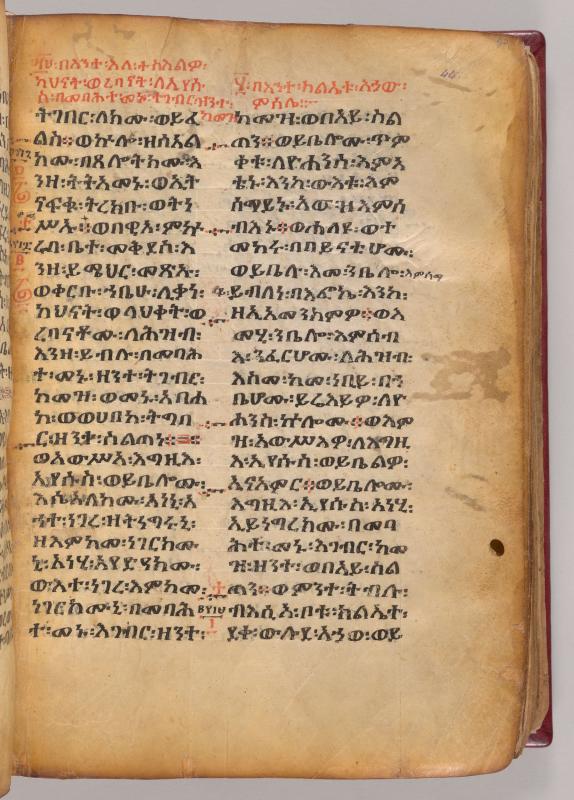 በእንተ፡እለ፡ተስእልዎ፡
ካህናት፡ወረበናት፡ለኢየሱ
ስ፡በመባሕተ፡መኑ፡ትገብር፡ዝንተ፡
ከመዝ
ትገበር፡ለክሙ፡ወይፈ
ልስ፡ወኵሎ፡ዘሰአል
ክሙ፡በጸሎትክሙ፡እ
ንዘ፡ትትአመኑ፡ወኢት
ናፍቁ፡ትረክቡ፡ወትነ
ሥኡ፡፡ወበዊኦ፡ምኵ
ራበ፡ቤተ፡መቅደስ፡እ
ንዘ፡ይሜህር፡መጽኡ፡
ወቀርቡ፡ኀቤሁ፡ሊቃነ፡
ካህናት፡ወላህቀት፡ወ
ረበናቶሙ፡ለሕዝብ፡
እንዘ፡ይብሉ፡በመባሕ
ተ፡መኑ፡ዘንተ፡ትገብር፡
ከመዝ፡ወመኑ፡አብሐ
ከ፡ወወሀበከ፡ትግበ
ር፡ዘንተ፡ስልጣነ፡፡
ወአውሥአ፡እግዚእ፡
ኢየሱስ፡ወይቤሎሙ፡
እሴአለክሙ፡አነኒ፡አ
ሐተ፡ነገረ፡ዘትነግሩኒ፡
ዘእምከመ፡ነገርክሙ
ኒ፡አነሂ፡አየድዓክሙ፡
ውእተ፡ነገረ፡እምከመ፡
ነገርክሙኒ፡በመባሕ
ተ፡መኑ፡እገብር፡ዘንተ፡
፶፡በእንተ፡ክልኤቱ፡አኃው፡
ምሳሌ፡
ከመዝ፡ወበአይ፡ስል
ጣን፡፡ወይቤሎሙ፡ጥም
ቀቱ፡ለዮሐንስ፡እምአ
ቴኑ፡እንከ፡ውእቱ፡እም
ሰማይኑ፡አው፡ዘእምሰ
ብእኑ፡፡ወሐለዩ፡ወተ
መክሩ፡በበይናቲሆሙ፡
ወይቤሉ፡እመ፡ንቤሎ፡እምሰማ
ይ፡ይብለነ፡በእፎኬ፡እንከ፡
ዘኢአመንክምዎ፡፡ወእ
መሂ፡ንቤሎ፡እምሰብ
እ፡ንፈርሆሙ፡ለሕዝብ፡
እስመ፡ከመ፡ነቢይ፡በኀ
ቤሆሙ፡ይሬእይዎ፡ለዮ
ሐንስ፡ኵሎሙ፡፡ወእም
ዝ፡አውሥእዎ፡ለእግዚ
እ፡ኢየሱስ፡ወይቤልዎ፡
ኢናአምር፡፡ወይቤሎሙ፡
እግዚእ፡ኢየሱስ፡አነሂ፡
ኢይነግረክሙ፡በመባ
ሕተ፡መኑ፡እገብር፡ከመ
ዝ፡ዘንተ፡ወበአይ፡ስል
ጣን፡፡ወምንተ፡ትብሉ፡
ብእሲ፡አ፡ቦቱ፡ክልኤተ፡
ደቀ፡ውሉደ፡አኃው፡ወይ